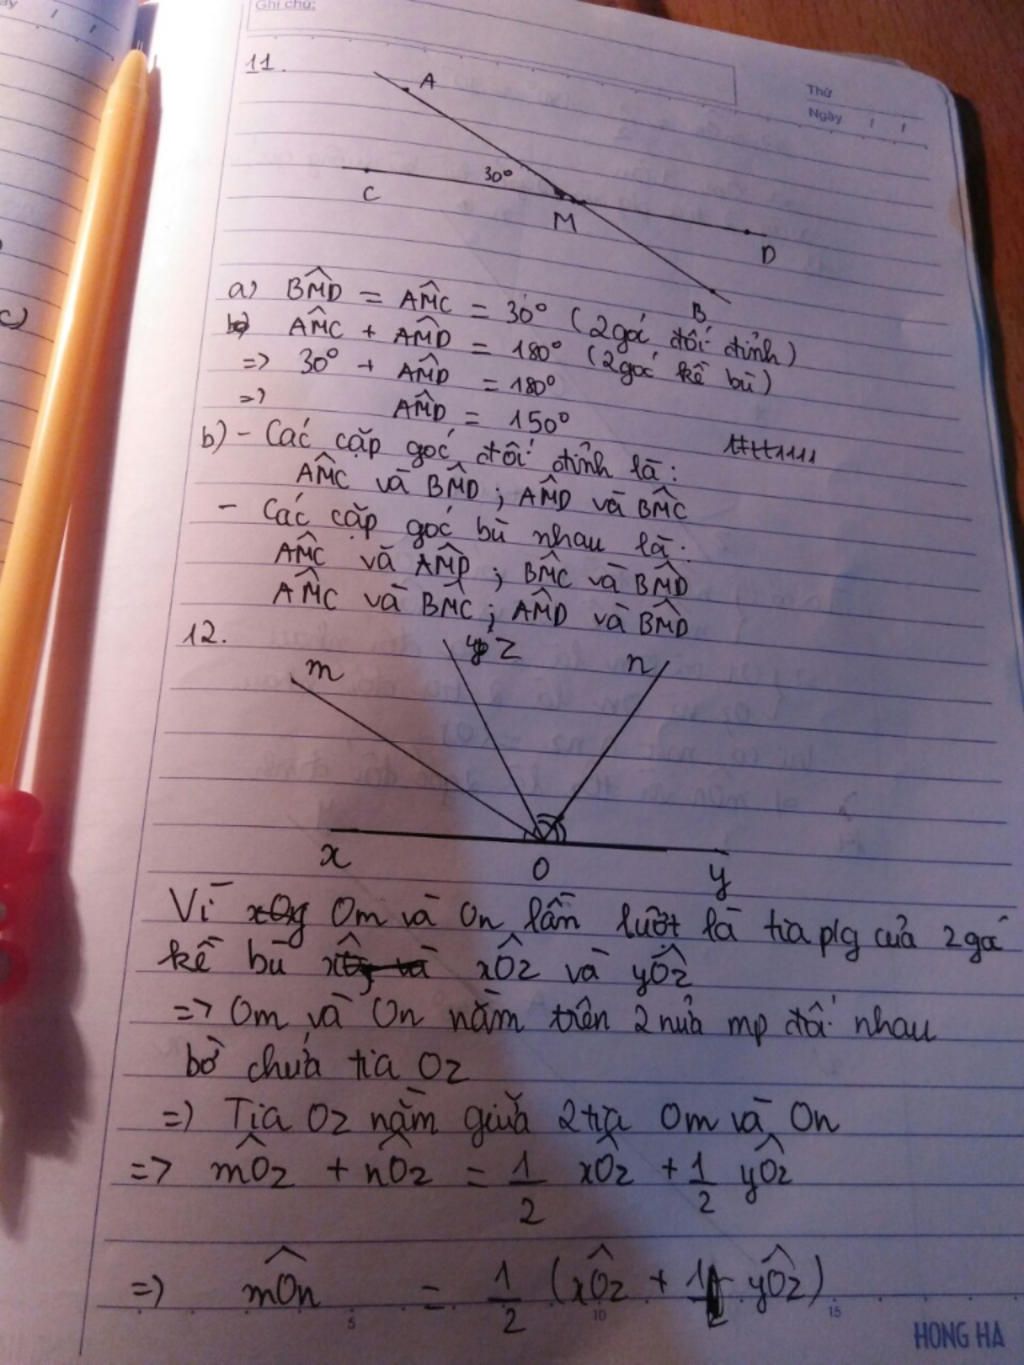 Ghi chú:
Thứ
Ngày / /
11.
A
30°
C
M
D
B
a) BMD = AMC = 30° (2 góc đối đỉnh)
b) AMC + AMD = 180° (2 góc kề bù)
=> 30° + AMD = 180°
=> AMD = 150°
b) - Các cặp góc đối đỉnh là:
AMC và BMD ; AMD và BMC
- Các cặp góc bù nhau là:
AMC và AMD ; BMC và BMD
AMC và BMC ; AMD và BMD
12.
m
z
n
x
O
y
Vì xOy Om và On lần lượt là tia p/g của 2 gó
kề bù xOz và yOz
=> Om và On nằm trên 2 nửa mp đối nhau
bờ chứa tia Oz
=> Tia Oz nằm giữa 2 tia Om và On
=> mOz + nOz = 1/2 xOz + 1/2 yOz
=> mOn = 1/2 (xOz + yOz)
5 10 15
HONG HA